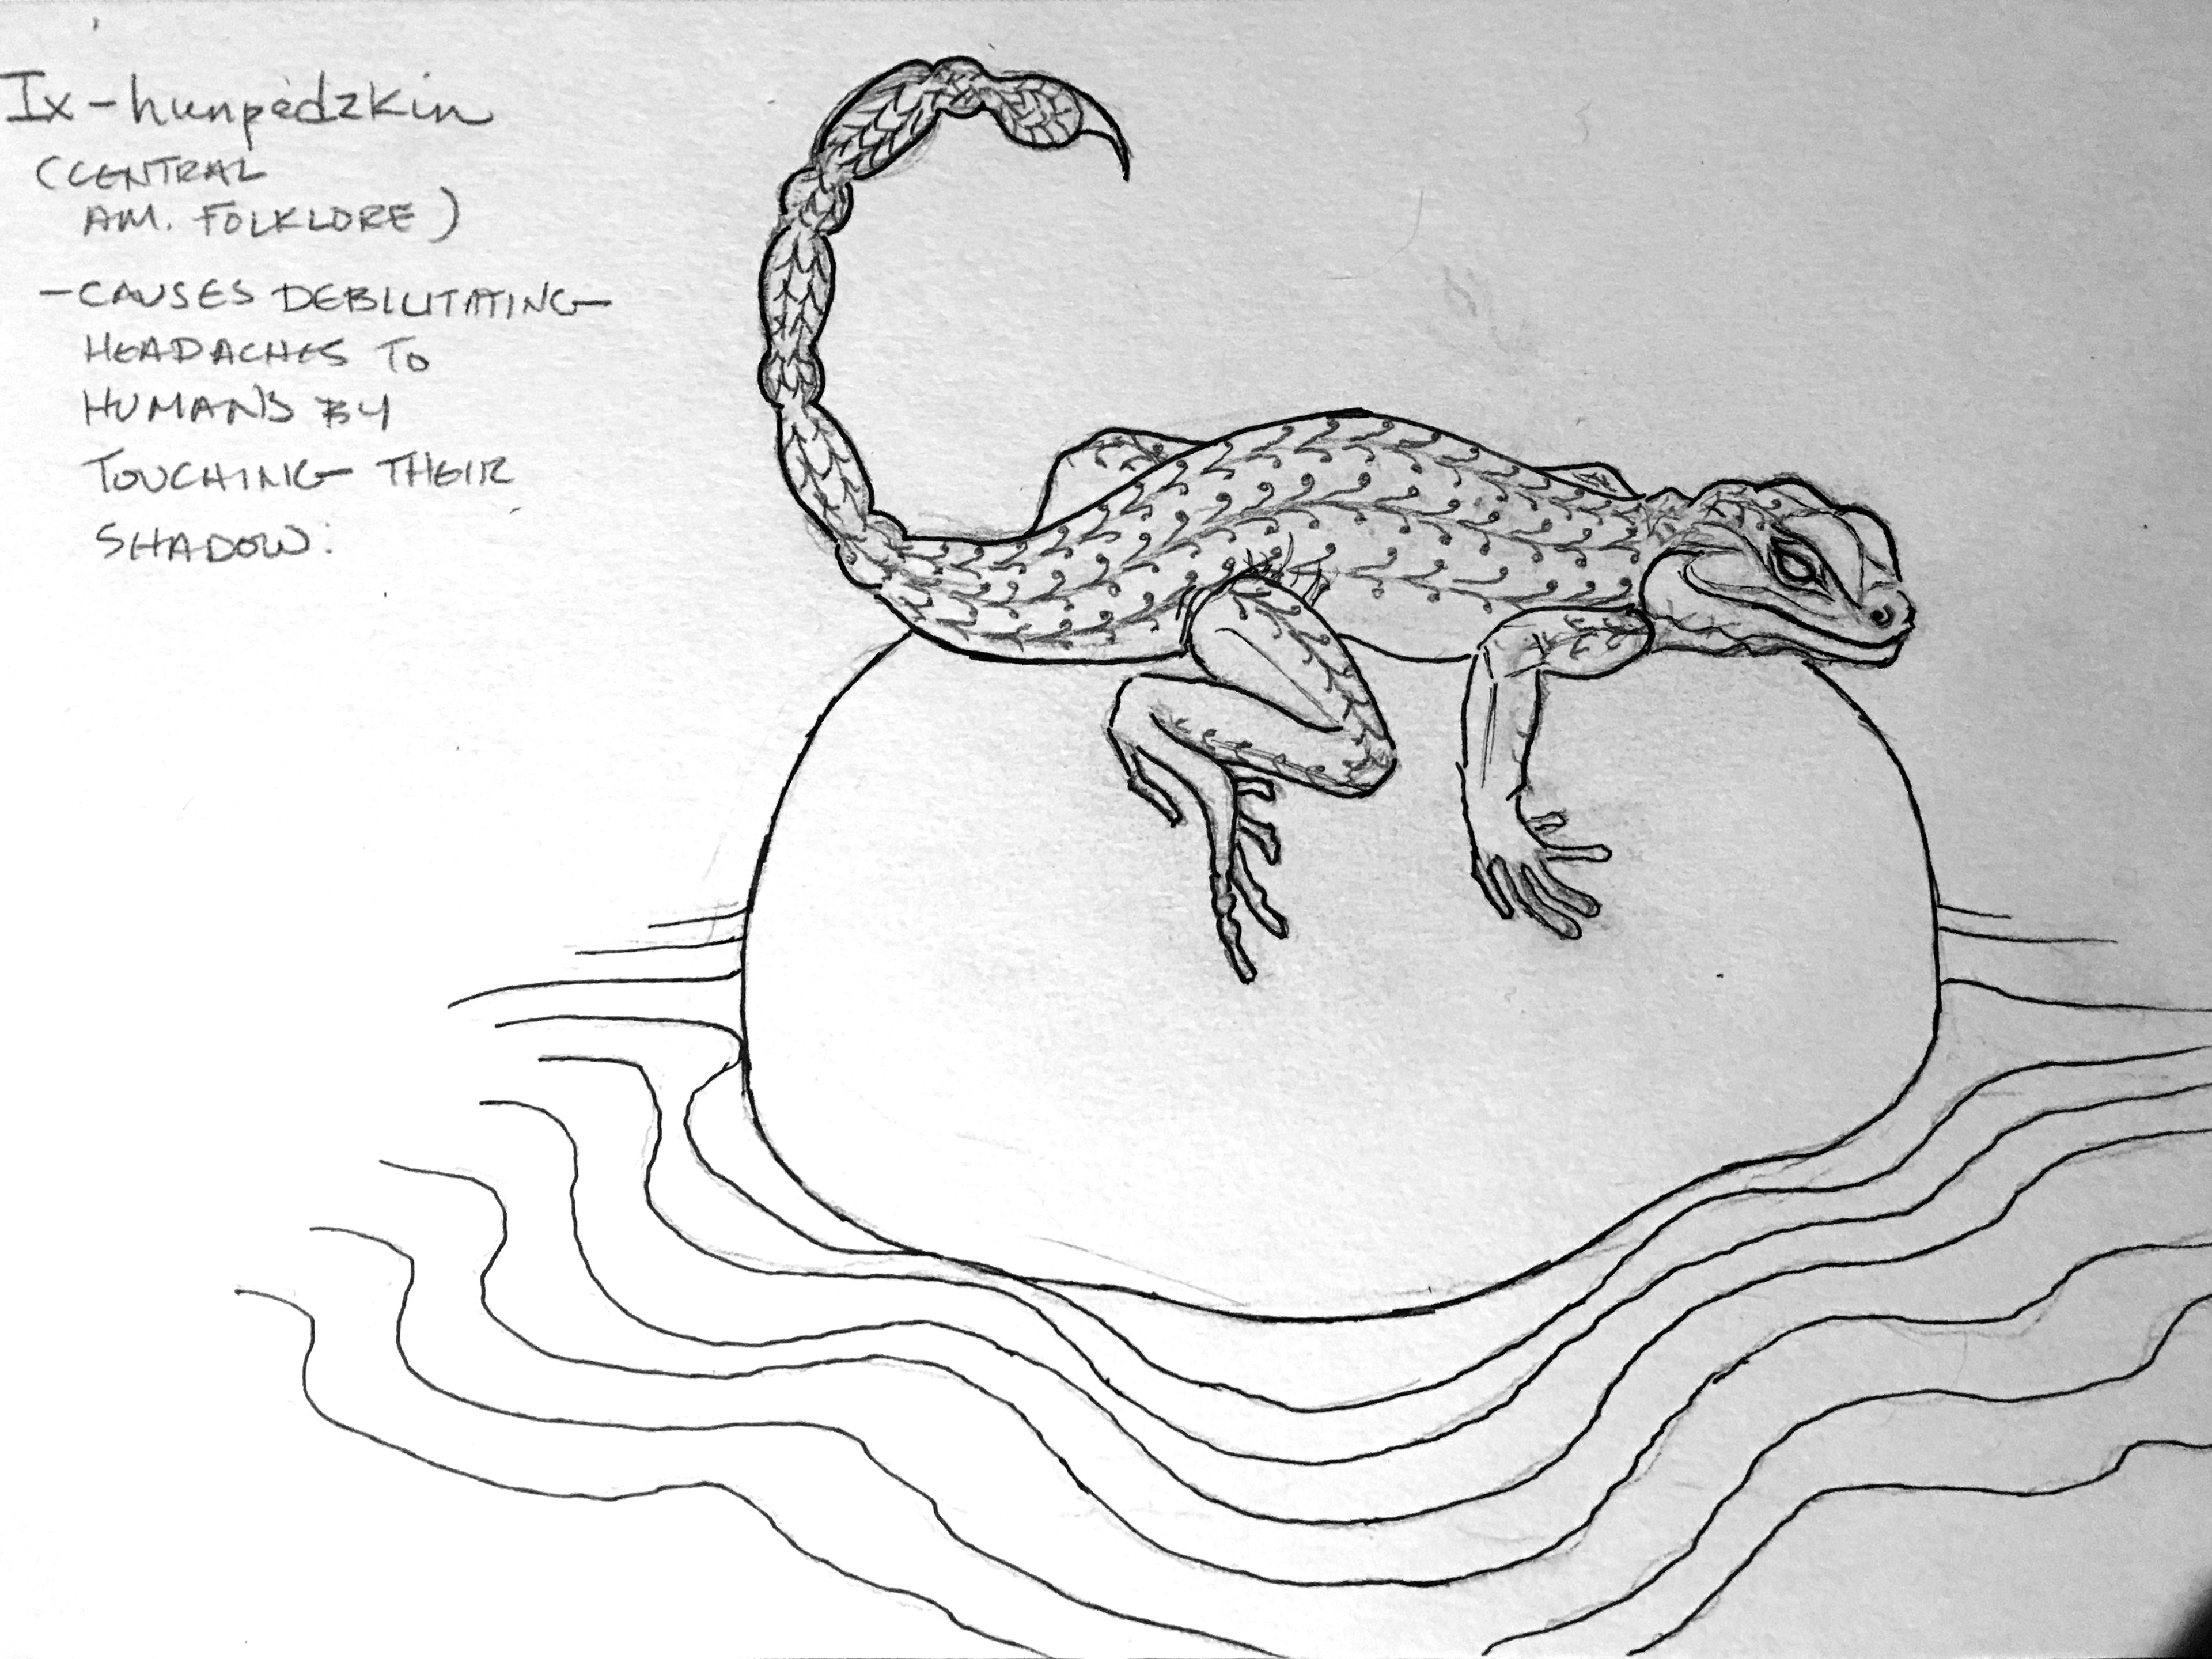 Ix-hunpedzkin
(CENTRAL
AM. FOLKLORE)
-CAUSES DEBILITATING
HEADACHES TO
HUMANS BY
TOUCHING THEIR
SHADOW.